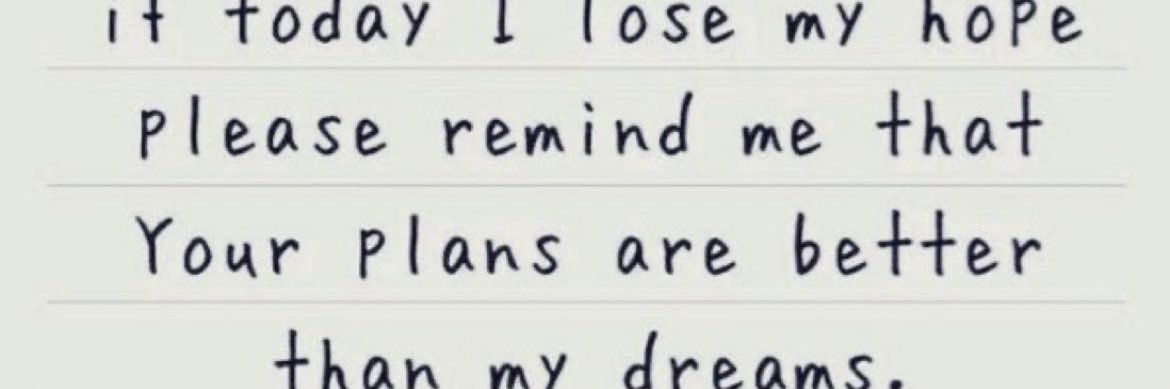 if today I lose my hope
please remind me that
Your plans are better
than my dreams.